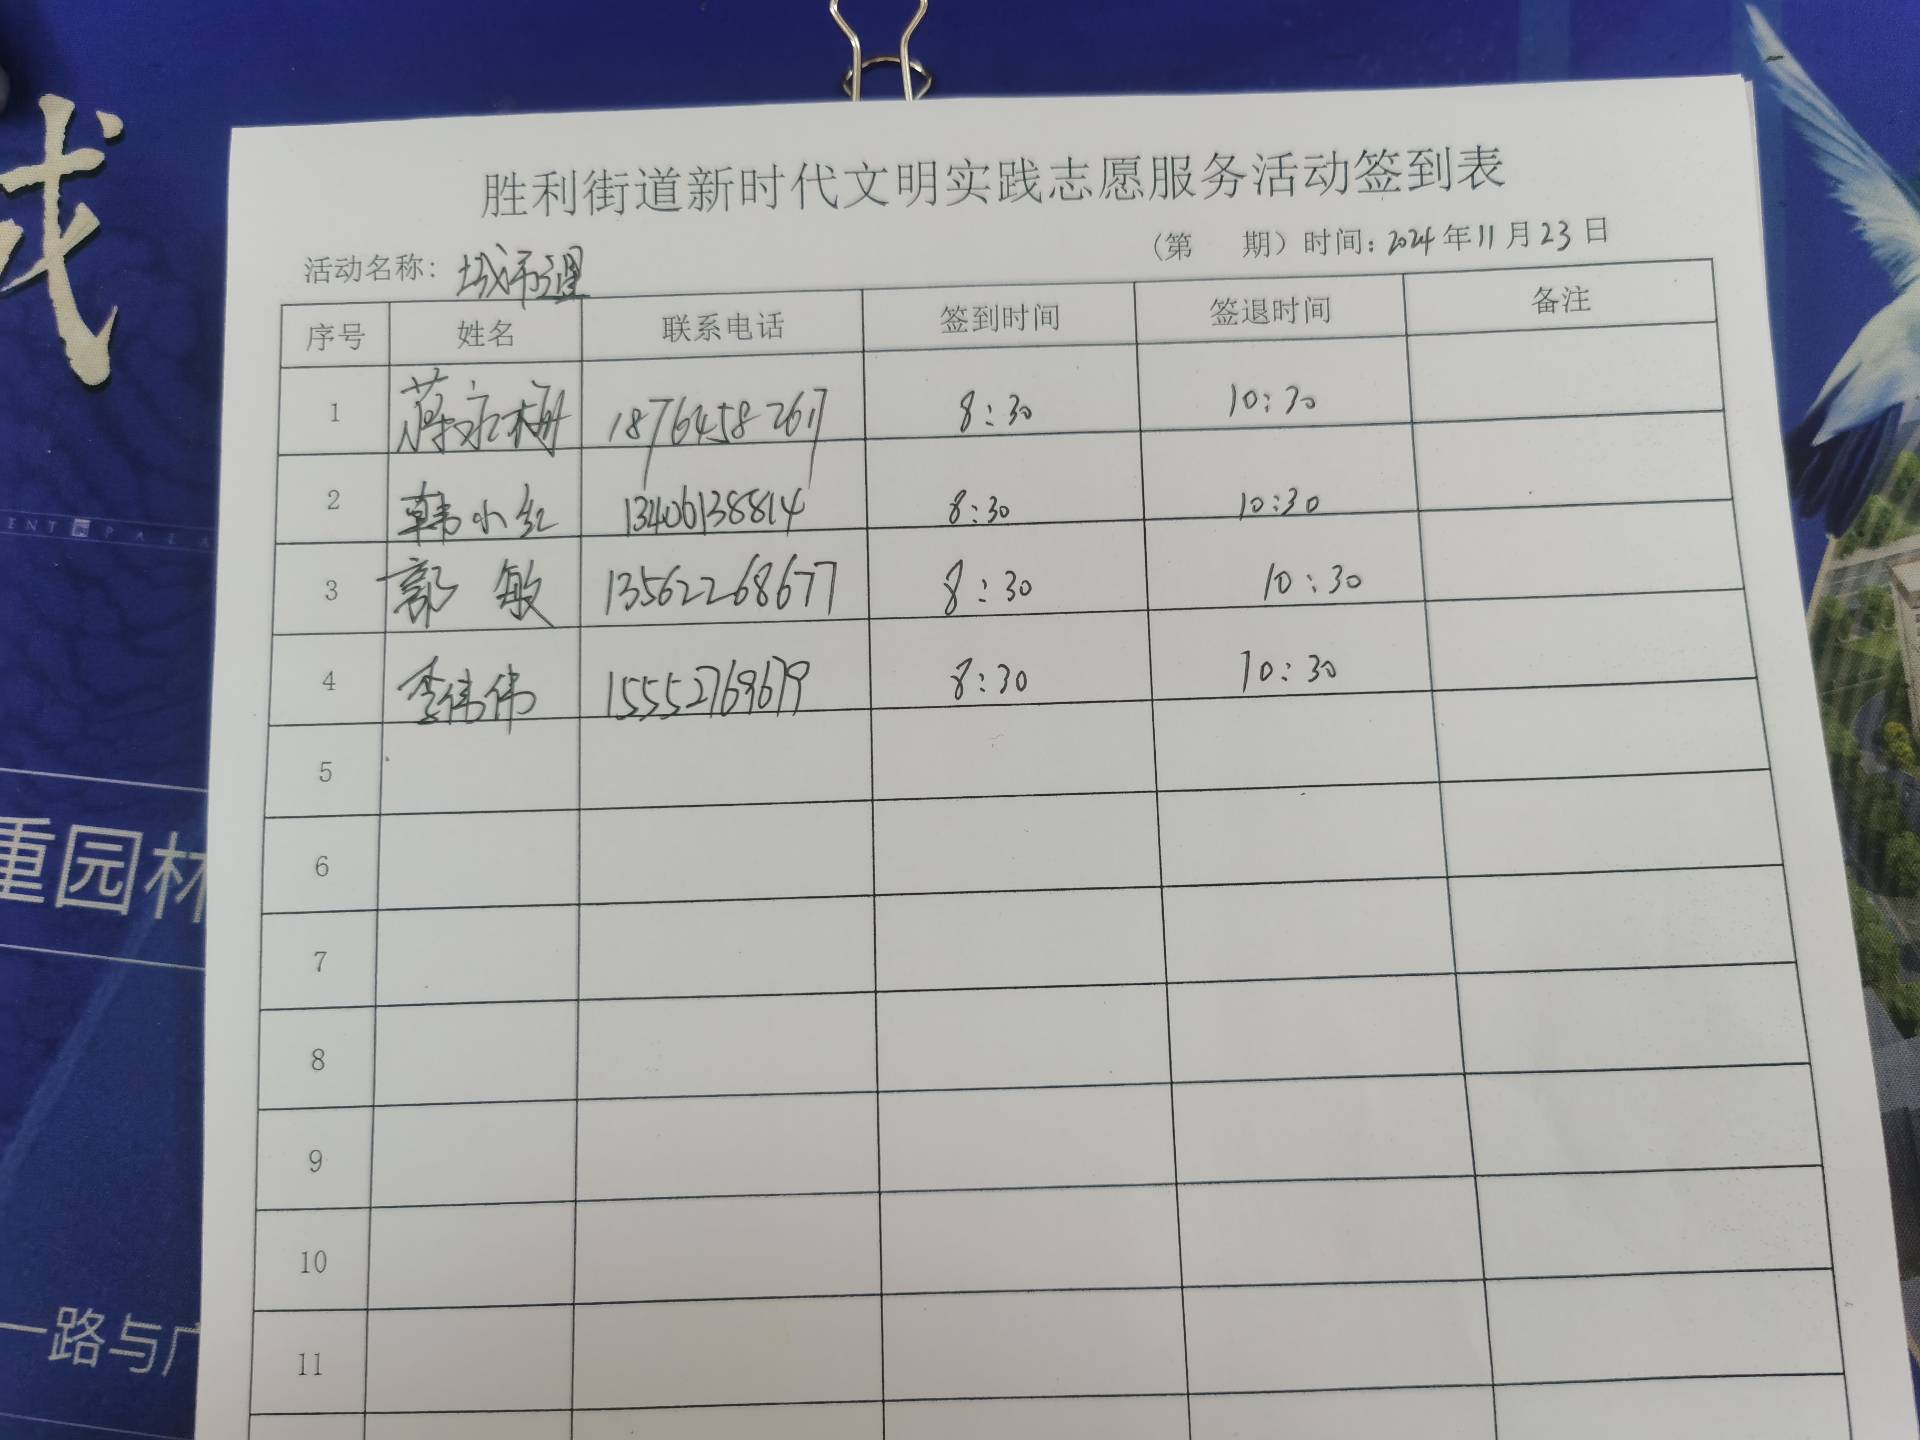 胜利街道新时代文明实践志愿服务活动签到表
活动名称：城市治理 （第 期）时间：2024年11月23日
序号 姓名 联系电话 签到时间 签退时间 备注
1 蒋永梅 18764582617 8:30 10:30
2 韩小红 13406138814 8:30 10:30
3 郭敏 13562268677 8:30 10:30
4 季伟伟 15552769679 8:30 10:30
5
6
7
8
9
10
11
城
重园林
一路与广